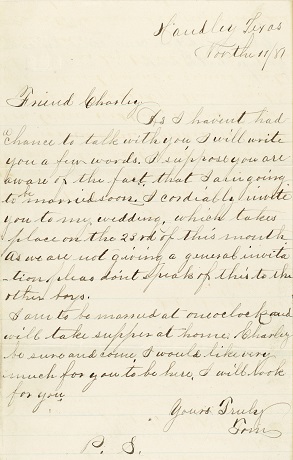 Handley Texas
Nov the 11/87
Friend Charley
As I havent had
a chance to talk with you I will write
you a few words. I suppose you are
aware of the fact, that I am going
to be married soon. I cordialy invite
you to my wedding, which takes
place on the 23rd of this month
As we are not giving a general invita
-tion, pleas dont speak of this to the
other boys.
I am to be married at one oclock and
will take supper at home. Charley
be sure and come. I would like very
much for you to be here. I will look
for you
Yours Truly
Tom
P. S.